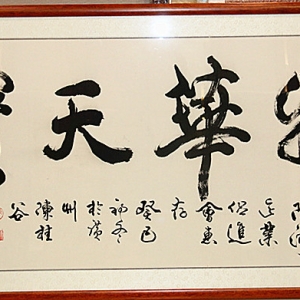 華天
業
促進
會惠
存
癸巳
初冬
於黃
州
陳桂
谷